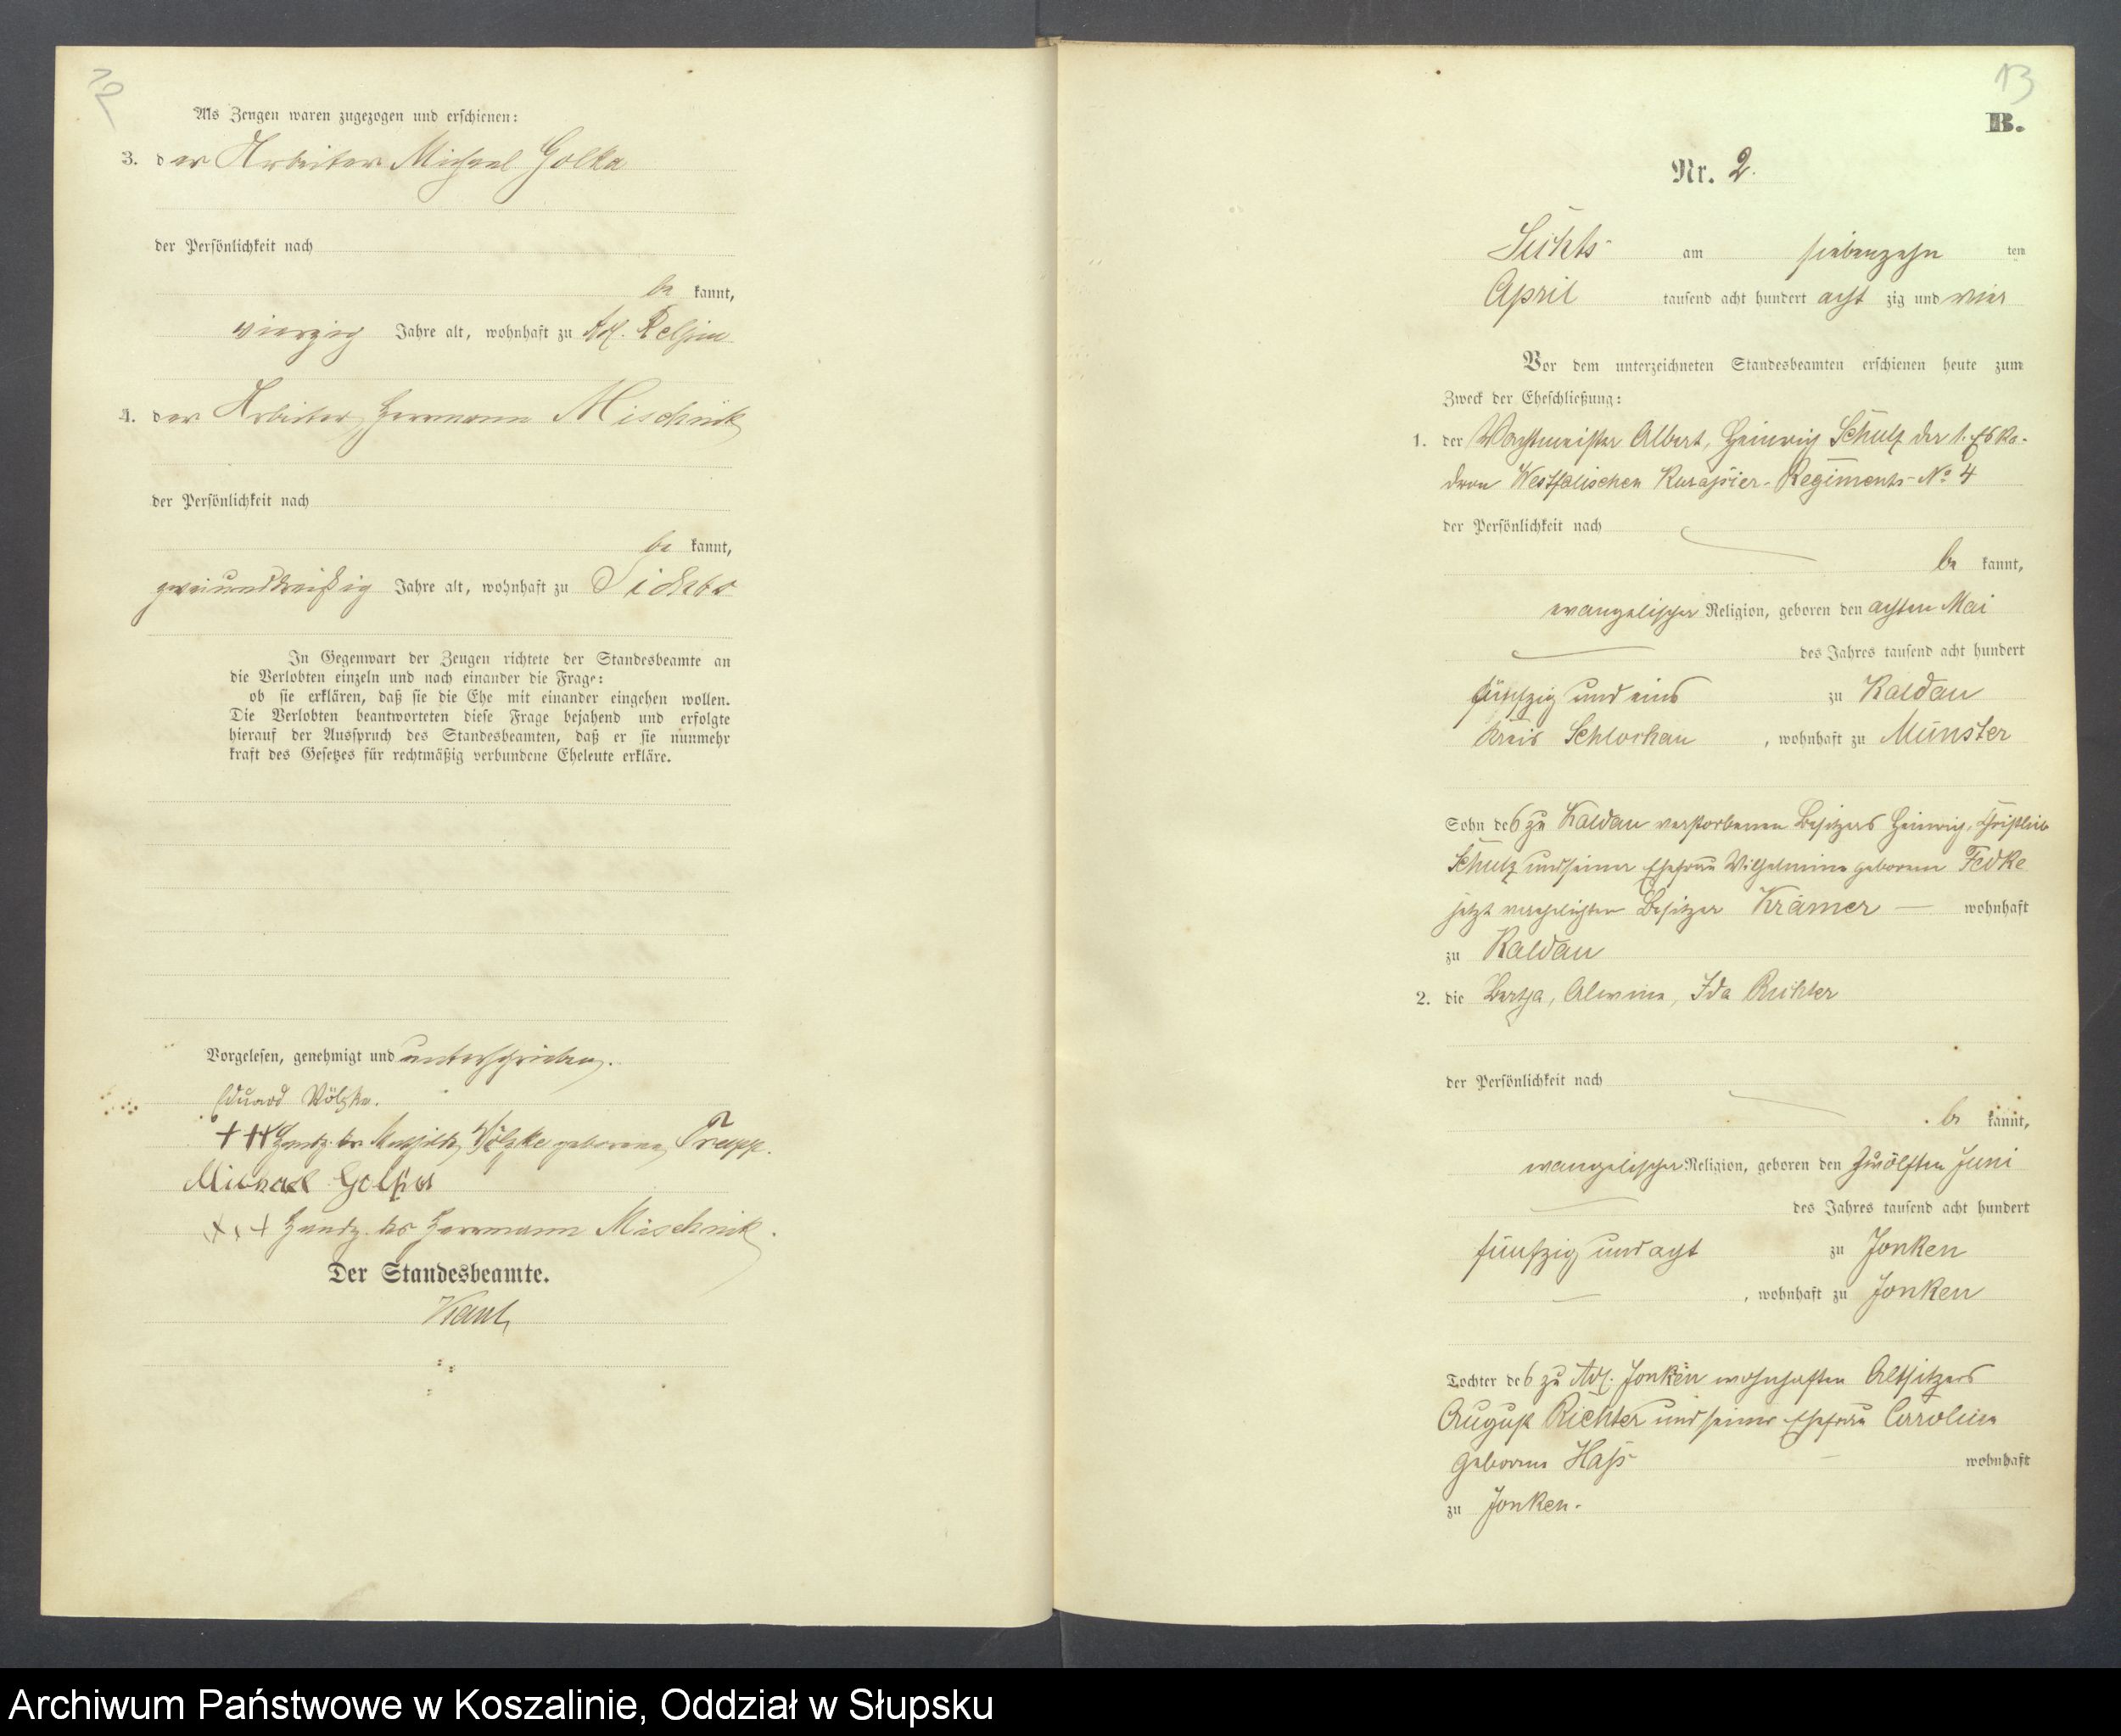 Als Zeugen waren zugezogen und erschienen:
3. der Arbeiter Michael Golka
der Persönlichkeit nach
be kannt,
vierzig Jahre alt, wohnhaft zu Adl.
4. der Arbeiter Herrmann Mischnik
der Persönlichkeit nach
be kannt,
zweiunddreißig Jahre alt, wohnhaft zu
In Gegenwart der Zeugen richtete der Standesbeamte an
die Verlobten einzeln und nach einander die Frage:
ob sie erklären, daß sie die Ehe mit einander eingehen wollen.
Die Verlobten beantworteten diese Frage bejahend und erfolgte
hierauf der Ausspruch des Standesbeamten, daß er sie nunmehr
kraft des Gesetzes für rechtmäßig verbundene Eheleute erkläre.
Vorgelesen, genehmigt und unterschrieben.
Eduard Völzke.
+++ Handz. der Mathilde Völzke geborene
Michael
+++ Handz. des Herrmann Mischnik.
Der Standesbeamte.
13
B.
Nr. 2.
am siebenzehn ten
April tausend acht hundert acht zig und vier
Vor dem unterzeichneten Standesbeamten erschienen heute zum
Zweck der Eheschließung:
1. der Wachtmeister Albert, Heinrich Schulz der 1. Eska-
dron Westfälischen Kürassier-Regiments No 4
der Persönlichkeit nach
be kannt,
evangelischer Religion, geboren den achten Mai
des Jahres tausend acht hundert
fünfzig und eins zu Kaldau
Kreis Schlochau, wohnhaft zu Münster
Sohn des zu Kaldau verstorbenen Besitzers Heinrich, Christlieb
Schulz und seiner Ehefrau Wilhelmine geborenen Fedke
jetzt verehelichten Besitzer Krämer — wohnhaft
zu Kaldau
2. die Bertha, Alwine, Ida Richter
der Persönlichkeit nach
be kannt,
evangelischer Religion, geboren den zwölften Juni
des Jahres tausend acht hundert
fünfzig und acht zu Jonken
, wohnhaft zu Jonken
Tochter des zu Adl. Jonken wohnhaften Altsitzers
August Richter und seiner Ehefrau Caroline
geborene Hass wohnhaft
zu Jonken.
Archiwum Państwowe w Koszalinie, Oddział w Słupsku